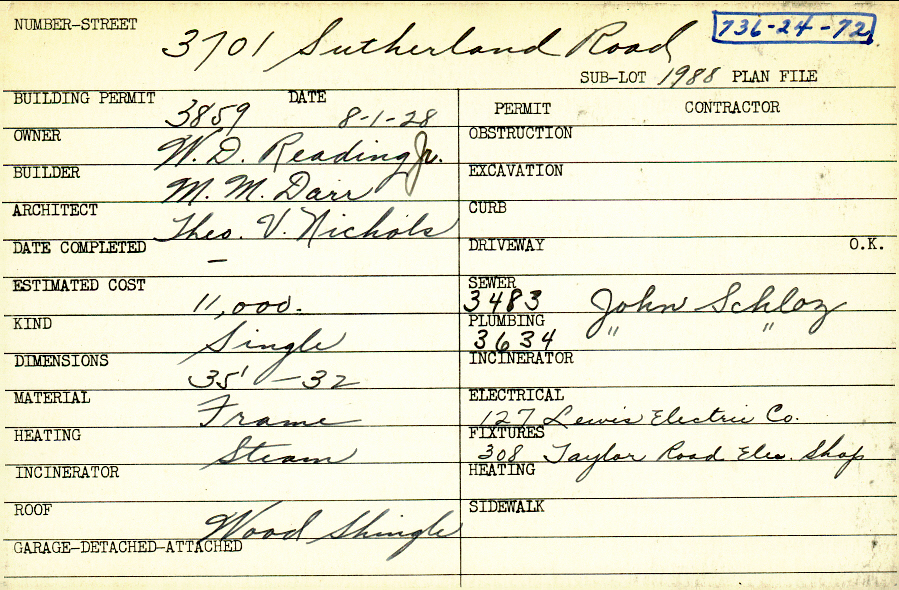 NUMBER-STREET 3701 Sutherland Road 736-24-72
SUB-LOT 1988 PLAN FILE
BUILDING PERMIT 3859 DATE 8-1-28
OWNER W. D. Reading Jr.
BUILDER M. M. Darr
ARCHITECT Theo. V. Nichols
DATE COMPLETED –
ESTIMATED COST 11,000.
KIND Single
DIMENSIONS 35' - 32
MATERIAL Frame
HEATING Steam
INCINERATOR
ROOF Wood Shingle
GARAGE-DETACHED-ATTACHED
PERMIT CONTRACTOR
OBSTRUCTION
EXCAVATION
CURB
DRIVEWAY O.K.
SEWER 3483 John Schloz
PLUMBING 3634 " "
INCINERATOR
ELECTRICAL 127 Lewis Electric Co.
FIXTURES 308 Taylor Road Elec. Shop
HEATING
SIDEWALK